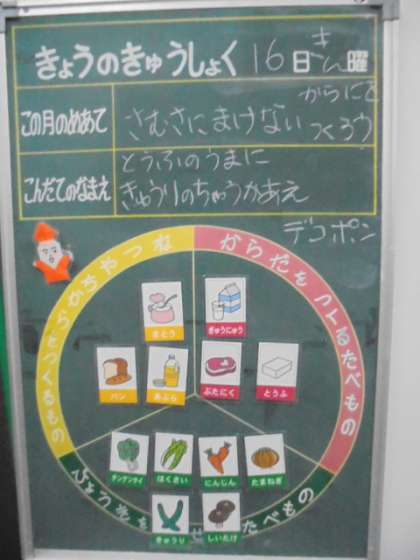 きょうのきゅうしょく 16日 きん曜
この月のめあて
さむさにまけない
からだを
つくろう
こんだてのなまえ
とうふのうまに
きゅうりのちゅうかあえ
デコポン
ちからやねつ
となるもの
からだをつくるたべもの
さとう
ぎゅうにゅう
パン
あぶら
ぶたにく
とうふ
チンゲンサイ
はくさい
にんじん
たまねぎ
きゅうり
しいたけ
たべもの